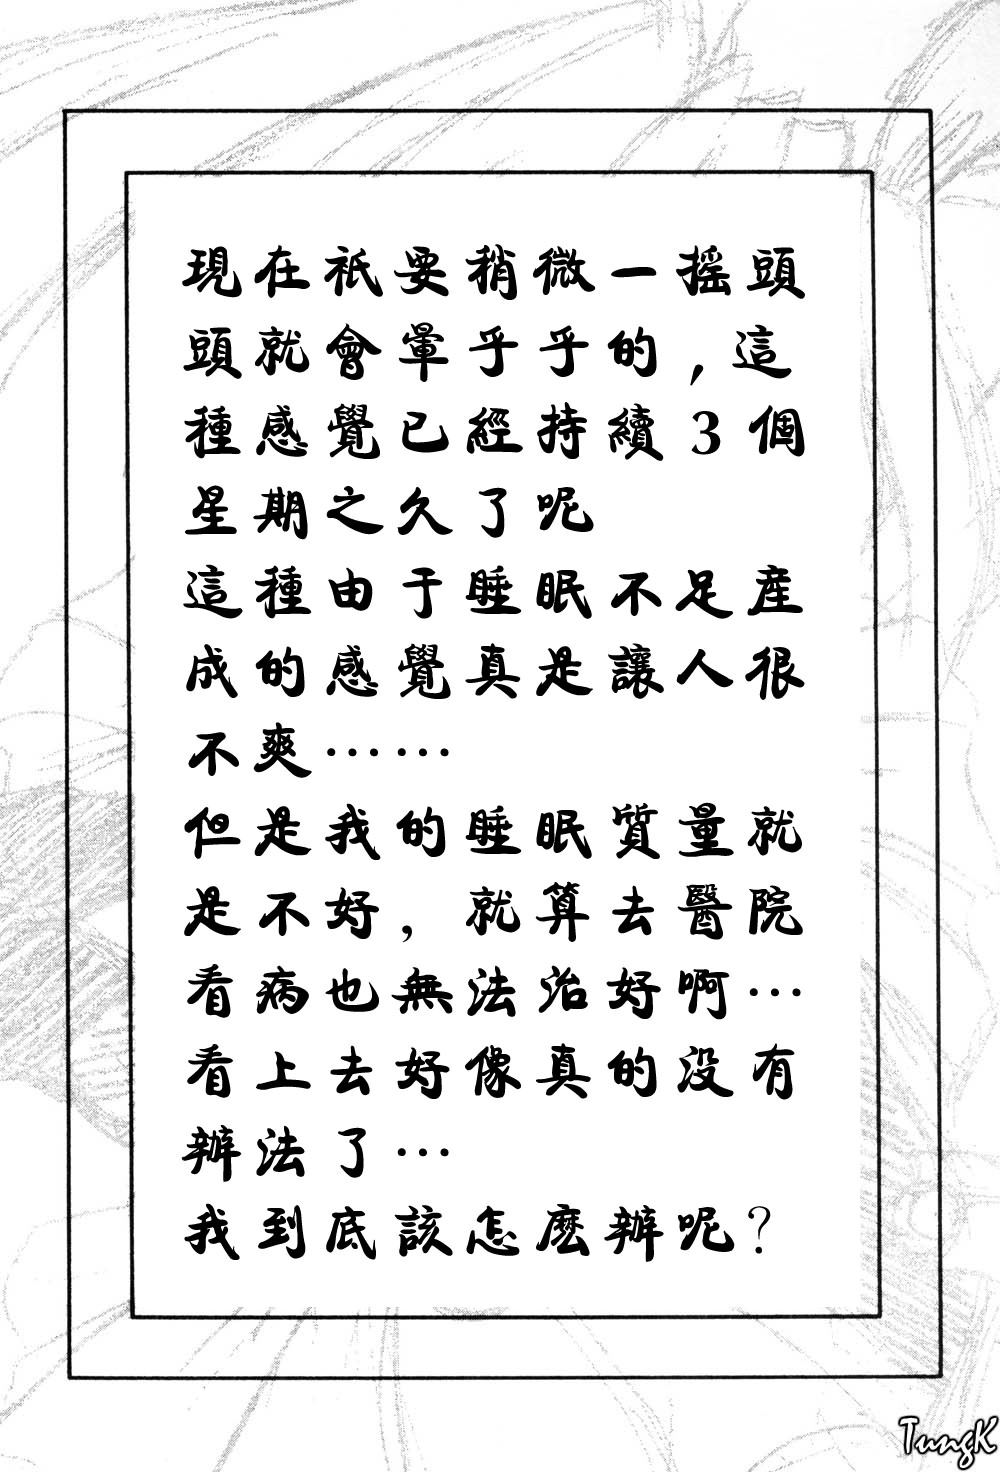 現在祇要稍微一摇頭
頭就會暈乎乎的，這
種感覺已經持續3個
星期之久了呢
這種由于睡眠不足産
成的感覺真是讓人很
不爽……
但是我的睡眠質量就
是不好，就算去醫院
看病也無法治好啊…
看上去好像真的没有
辦法了…
我到底該怎麽辦呢？
TungK